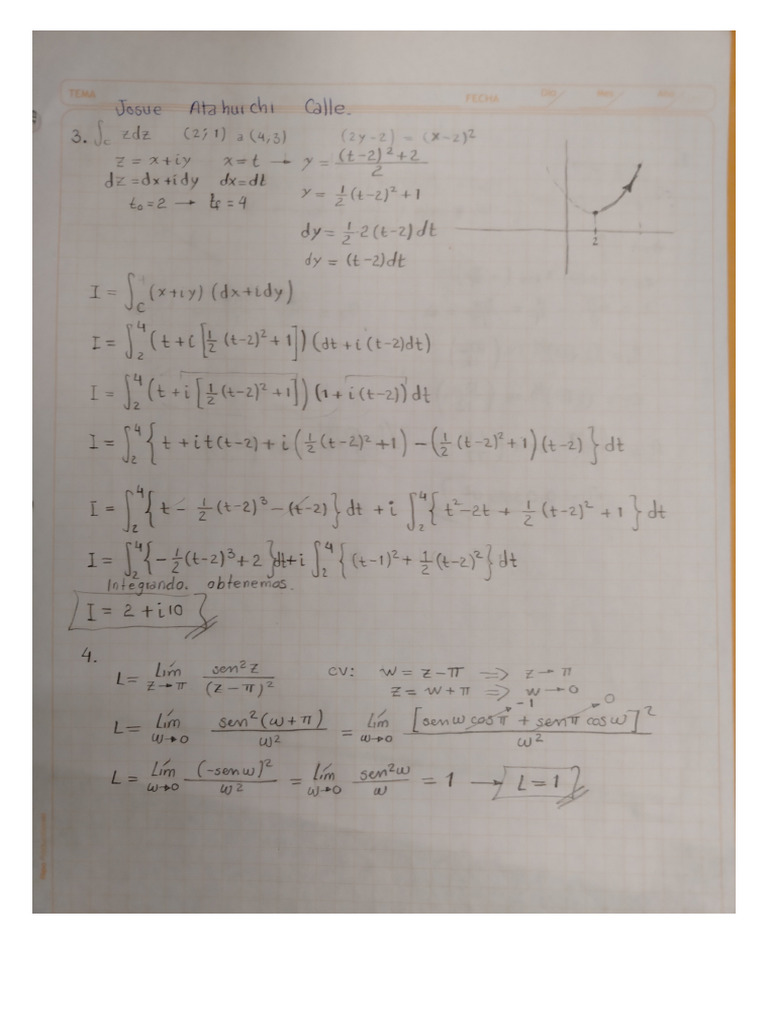 TEMA FECHA
Josue Atahuichi Calle.
3. ∫_C zdz (2;1) a (4,3) (2y-2) = (x-2)²
z = x+iy x=t → y = ((t-2)²+2)/2
dz=dx+idy dx=dt
t₀=2 → t_f=4 y = 1/2(t-2)²+1
dy = 1/2·2(t-2)dt
dy = (t-2)dt
2
I = ∫_C (x+iy)(dx+idy)
I = ∫₂⁴ (t+i[1/2(t-2)²+1])(dt+i(t-2)dt)
I = ∫₂⁴ (t+i[1/2(t-2)²+1])(1+i(t-2))dt
I = ∫₂⁴ {t+it(t-2)+i(1/2(t-2)²+1)-(1/2(t-2)²+1)(t-2)}dt
I = ∫₂⁴ {t-1/2(t-2)³-(t-2)}dt +i ∫₂⁴ {t²-2t+1/2(t-2)²+1}dt
I = ∫₂⁴ {-1/2(t-2)³+2}dt+i ∫₂⁴ {(t-1)²+1/2(t-2)²}dt
Integrando. obtenemos.
I = 2+i10
4.
L = Lím z→π sen²z/(z-π)² CV: w = z-π => z→π
z = w+π => w→0
L = Lím w→0 sen²(w+π)/w² = Lím w→0 [senw cosπ + senπ cosw]²/w² -1 0
L = Lím w→0 (-senw)²/w² = Lím w→0 sen²w/w = 1 → L=1